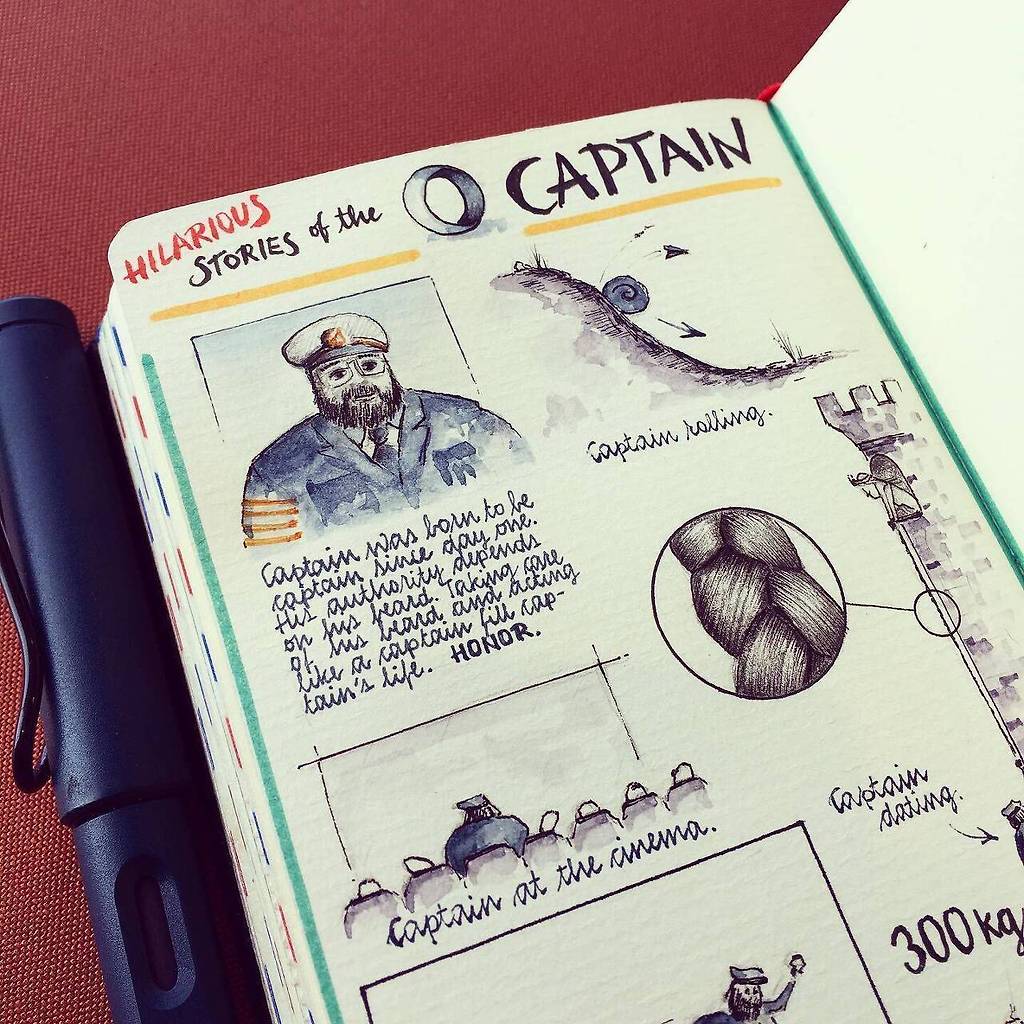 HILARIOUS
STORIES of the O CAPTAIN
Captain rolling.
Captain was born to be
captain since day one.
His authority depends
on his beard. Taking care
of his beard and acting
like a captain fill cap-
tain's life. HONOR.
Captain at the cinema.
Captain
dating.
300kg